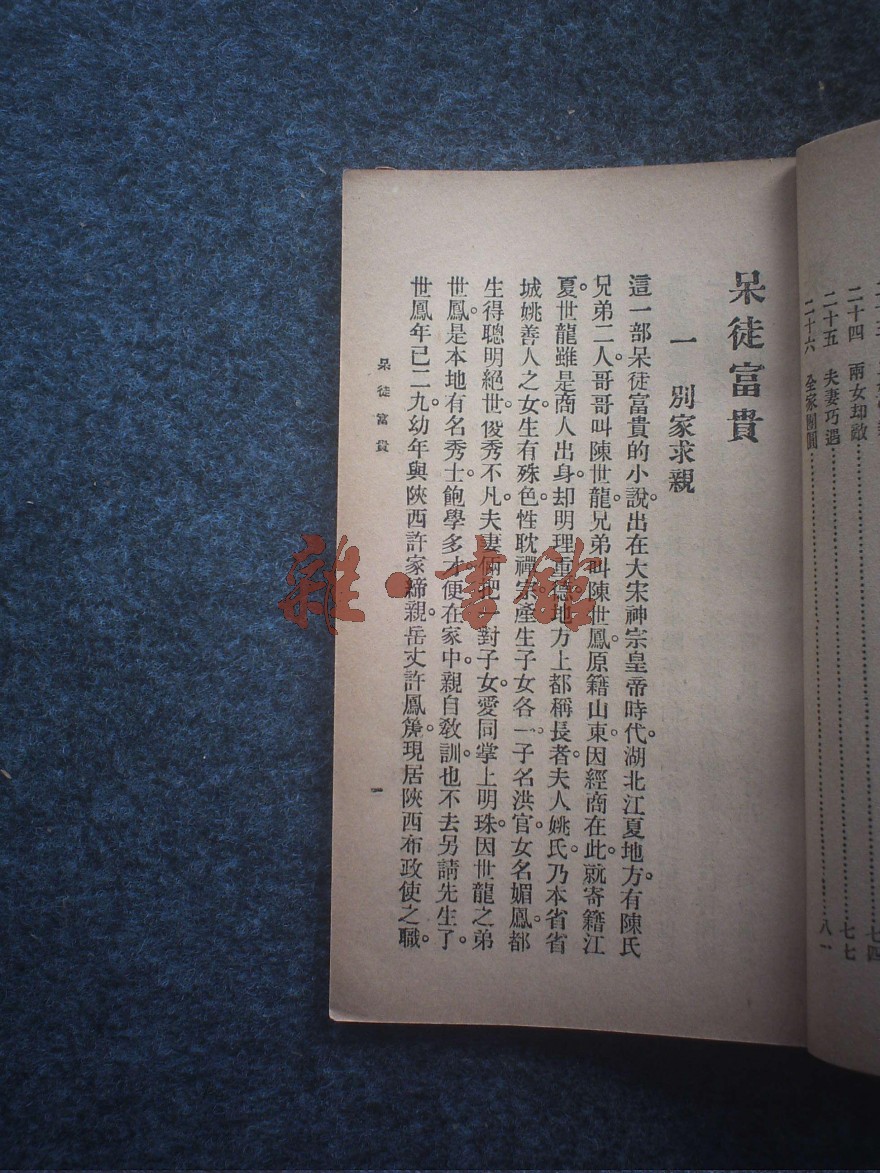 二十四　兩女却敵⋯⋯七四
二十五　夫妻巧遇⋯⋯七七
二十六　全家團圓⋯⋯八一
呆徒富貴
一　別家求親
這一部呆徒富貴的小說。出在大宋神宗皇帝時代。湖北江夏地方。有陳氏
兄弟二人。哥哥叫陳世龍。兄弟叫陳世鳳。原籍山東。因經商在此。就寄籍江
夏。世龍雖是商人出身。却明理重德。地方上都稱長者。夫人姚氏。乃本省省
城姚善人之女。生有殊色。性耽禪宗。產生子女各一。子名洪官。女名媚鳳。都
生得聰明絕世。俊秀不凡。夫妻倆把一對子女。愛同掌上明珠。因世龍之弟
世鳳。是本地有名秀士。飽學多才。便在家中。親自敎訓。也不去另請先生了。
世鳳年已二九。幼年與陝西許家締親。岳丈許鳳篪。現居陝西布政使之職。
呆徒富貴
一
雜·書館